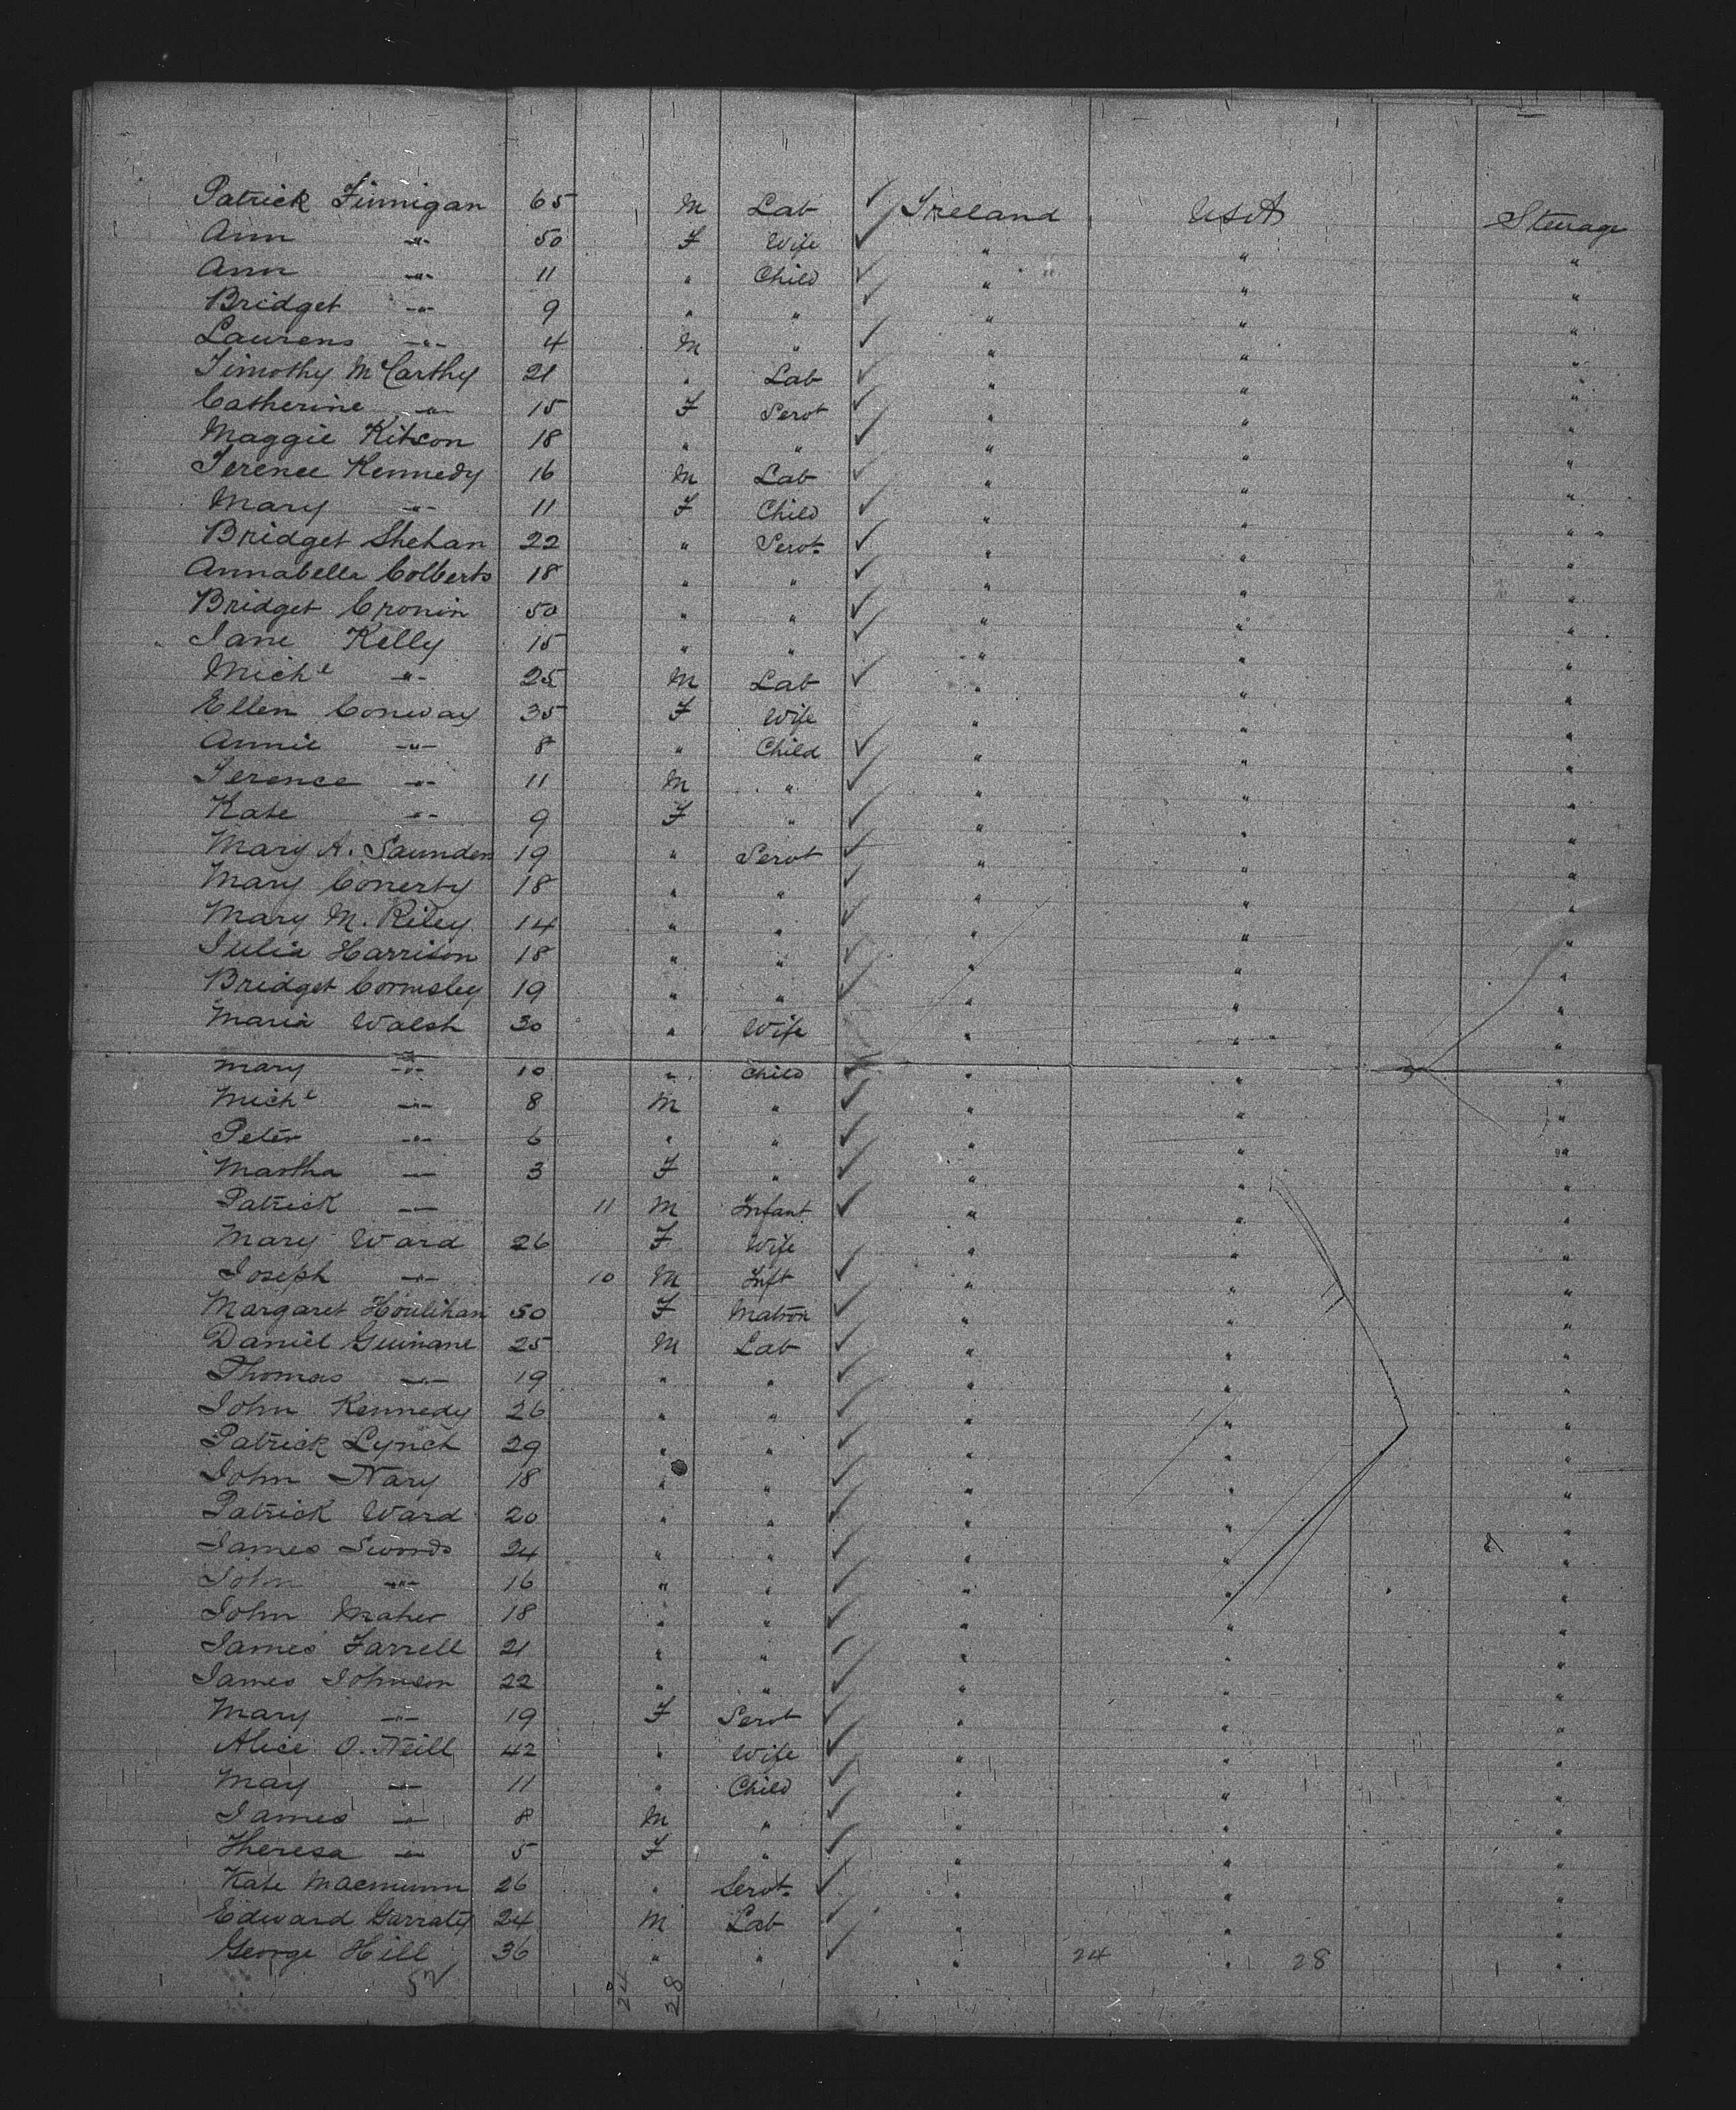 Patrick Finnigan 65 M Lab ✓ Ireland USA Steerage
Ann -"- 50 F Wife ✓ " " "
Ann -"- 11 " Child ✓ " " "
Bridget -"- 9 " " ✓ " " "
Laurens -"- 4 M " ✓ " " "
Timothy McCarthy 21 " Lab ✓ " " "
Catherine -"- 15 F Servt ✓ " " "
Maggie Kitson 18 " " ✓ " " "
Terence Kennedy 16 M Lab ✓ " " "
Mary -"- 11 F Child ✓ " " "
Bridget Shehan 22 " Servt. ✓ " " "
Annabella Colberts 18 " " ✓ " " "
Bridget Cronin 50 " " ✓ " " "
Jane Kelly 15 " " ✓ " " "
Michl -"- 25 M Lab ✓ " " "
Ellen Conway 35 F Wife " " "
Annie -"- 8 " Child ✓ " " "
Terence -"- 11 M " ✓ " " "
Kate -"- 9 F " ✓ " " "
Mary A. Saunders 19 " Servt ✓ " " "
Mary Conerty 18 " " ✓ " " "
Mary M. Riley 14 " " ✓ " " "
Julia Harrison 18 " " ✓ " " "
Bridget Cormsley 19 " " ✓ " " "
Maria Walsh 30 " Wife " " "
Mary -"- 10 " Child ✓ " " "
Michl -"- 8 M " ✓ " " "
Peter -"- 6 " " ✓ " " "
Martha -"- 3 F " ✓ " " "
Patrick -"- 11 M Infant ✓ " " "
Mary Ward 26 F Wife " " "
Joseph -"- 10 M Inft ✓ " " "
Margaret Houlihan 50 F Matron ✓ " " "
Daniel Guinane 25 M Lab ✓ " " "
Thomas -"- 19 " " ✓ " " "
John Kennedy 26 " " ✓ " " "
Patrick Lynch 29 " " ✓ " " "
John Nary 18 " " ✓ " " "
Patrick Ward 20 " " ✓ " " "
James Swords 24 " " ✓ " " "
John -"- 16 " " ✓ " " "
John Maher 18 " " ✓ " " "
James Farrell 21 " " ✓ " " "
James Johnson 22 " " ✓ " " "
Mary -"- 19 F Servt ✓ " " "
Alice O. Neill 42 " Wife ✓ " " "
May -"- 11 " Child ✓ " " "
James -"- 8 M " ✓ " " "
Theresa -"- 5 F " ✓ " " "
Kate Macmunn 26 " Servt. ✓ " " "
Edward Garraty 24 M Lab ✓ " " "
George Hill 36 " " ✓ " 24 " 28 "
52 24 28